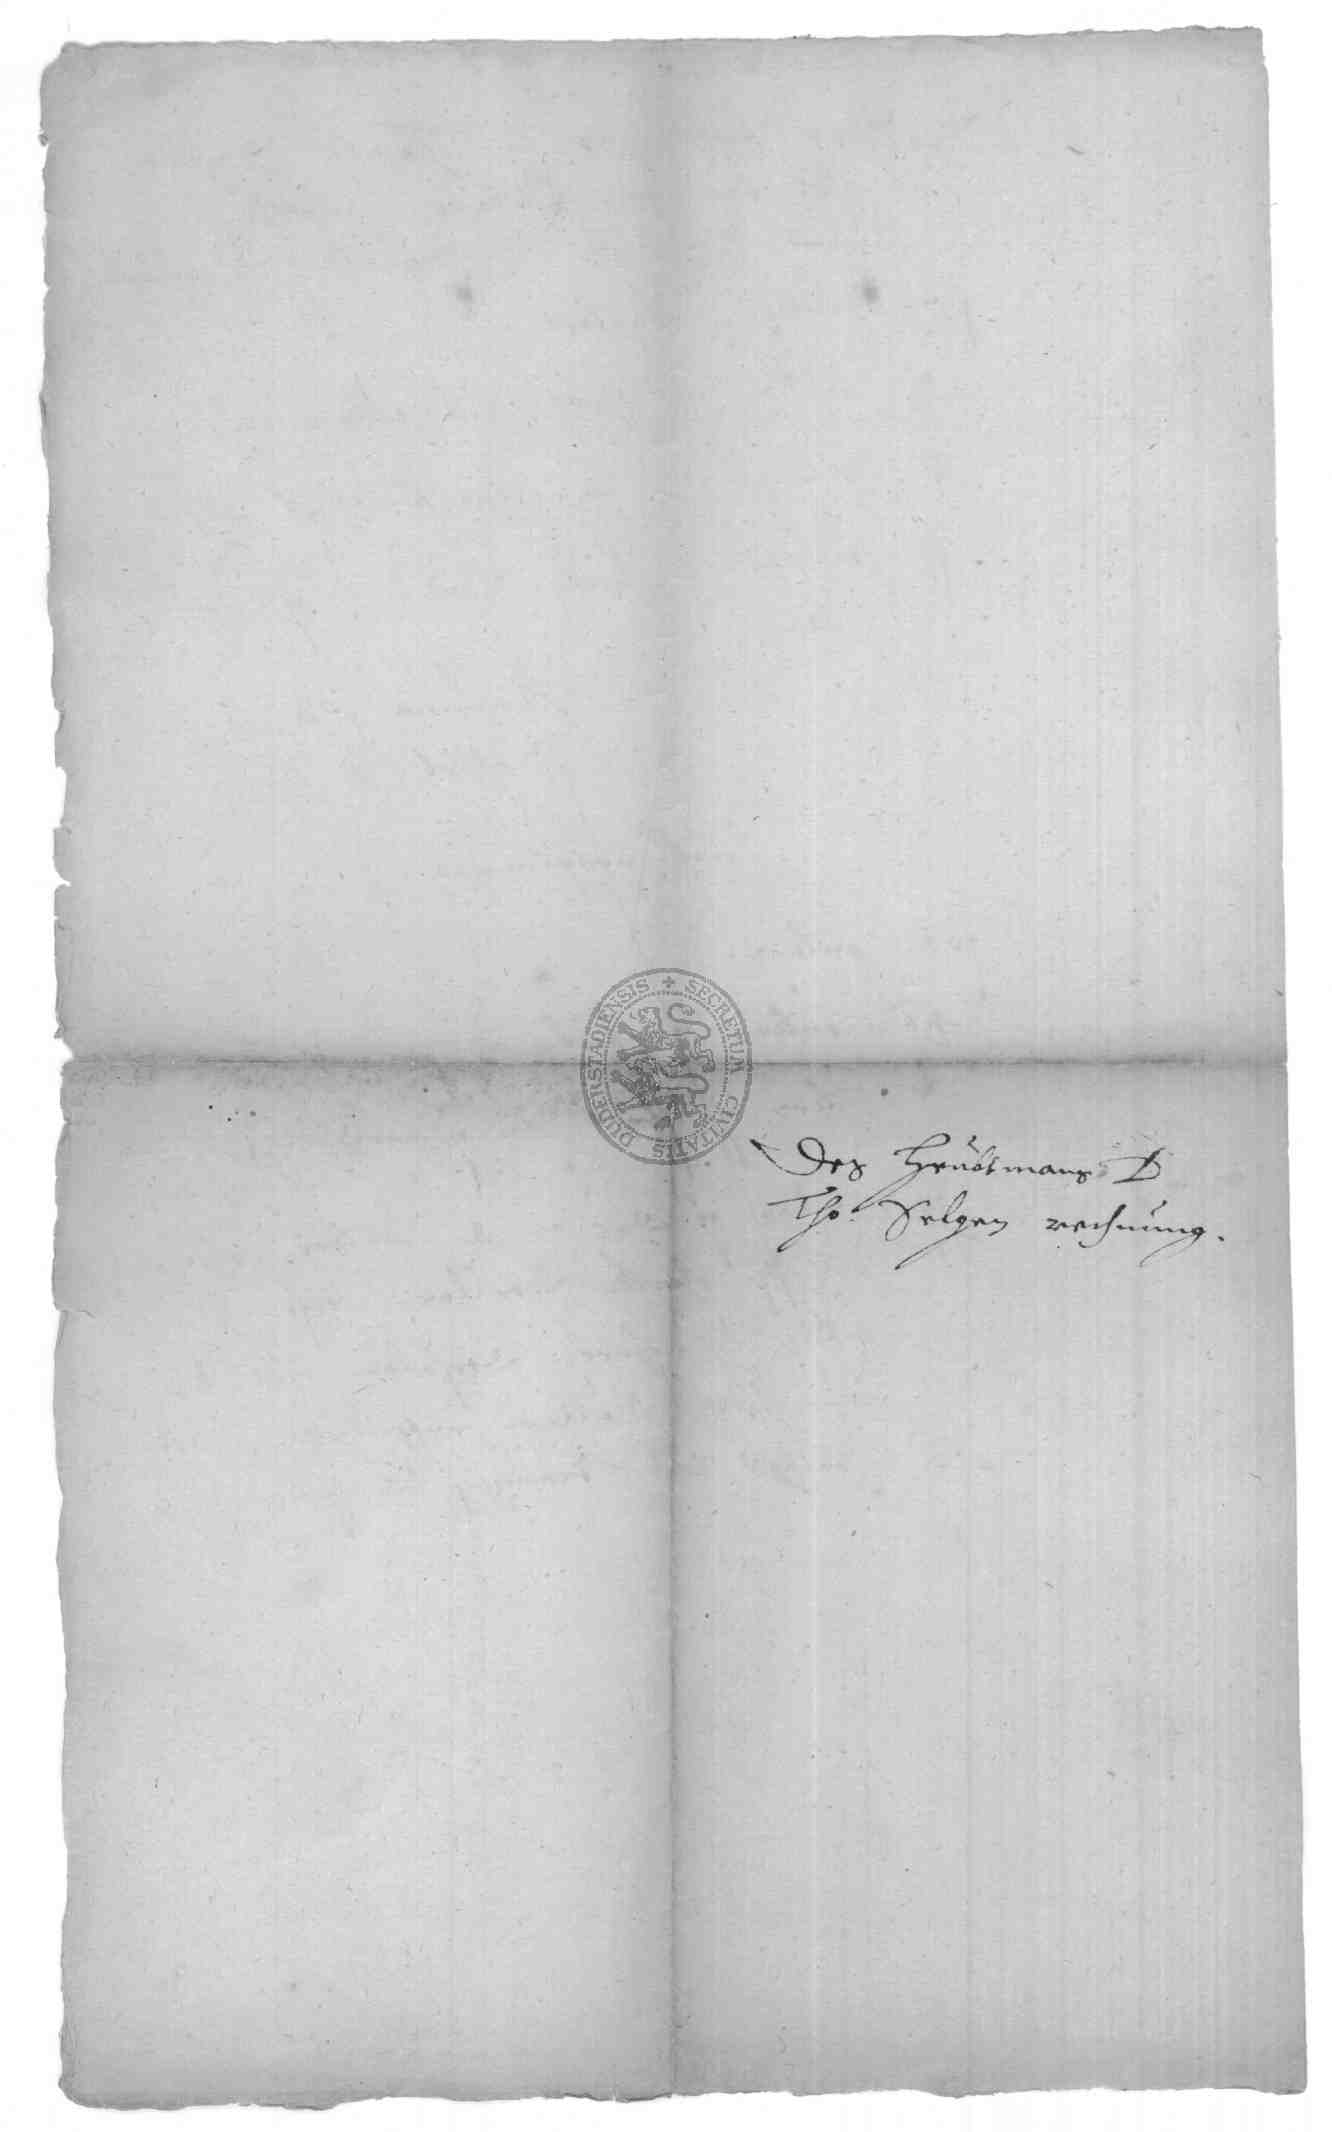 SECRETUM CIVITATIS DUDERSTADIENSIS
Des Heubtmans D
Tho: Selgen rechnung.